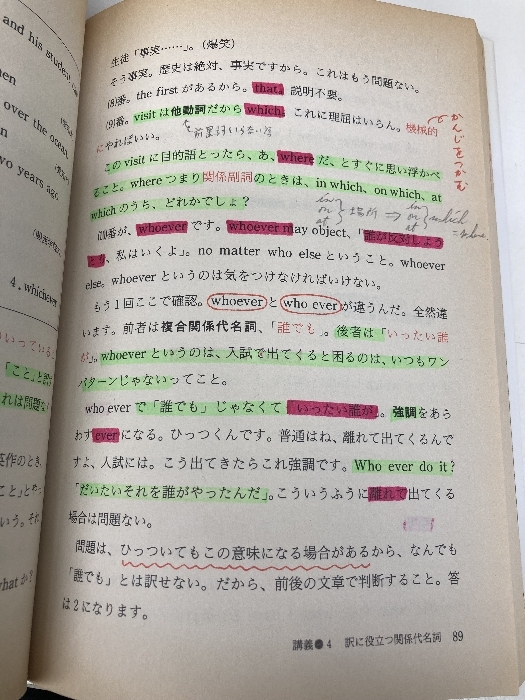 and his student
over the ocean
two years ago
4. whichever
生徒「事実……」。(爆笑)
そう事実。歴史は絶対、事実ですから。これはもう問題ない。
(8)番。the first があるから。that。説明不要。
(9)番。visit は他動詞だから which。これに理屈はいらん。機械的
にやればいい。
かんじをつかむ
この visit に目的語とったら、あ、where だ、とすぐに思い浮かべ
ること。where つまり関係副詞のときは、in which, on which, at
which のうち、どれかでしょ？
in on at 場所 ⇒ in on at which
(10)番が、whoever です。whoever may object,「誰が反対しよう
とも、私はいくよ」。no matter who else ということ。whoever
else。whoever というのは気をつけなければいけない。
もう１回ここで確認。whoever と who ever が違うんだ。全然違
います。前者は複合関係代名詞、「誰でも」。後者は「いったい誰
が」。whoever というのは、入試で出てくると困るのは、いつもワン
パターンじゃないってこと。
who ever で「誰でも」じゃなくて「いったい誰が」。強調をあら
わす ever になる。ひっつくんです。普通はね、離れて出てくるんで
すよ、入試には。こう出てきたらこれ強調です。Who ever do it?
「だいたいそれを誰がやったんだ」。こういうふうに離れて出てくる
場合は問題ない。
問題は、ひっついてもこの意味になる場合があるから、なんでも
「誰でも」とは訳せない。だから、前後の文章で判断すること。答
は２になります。
講義●4 訳に役立つ関係代名詞 89